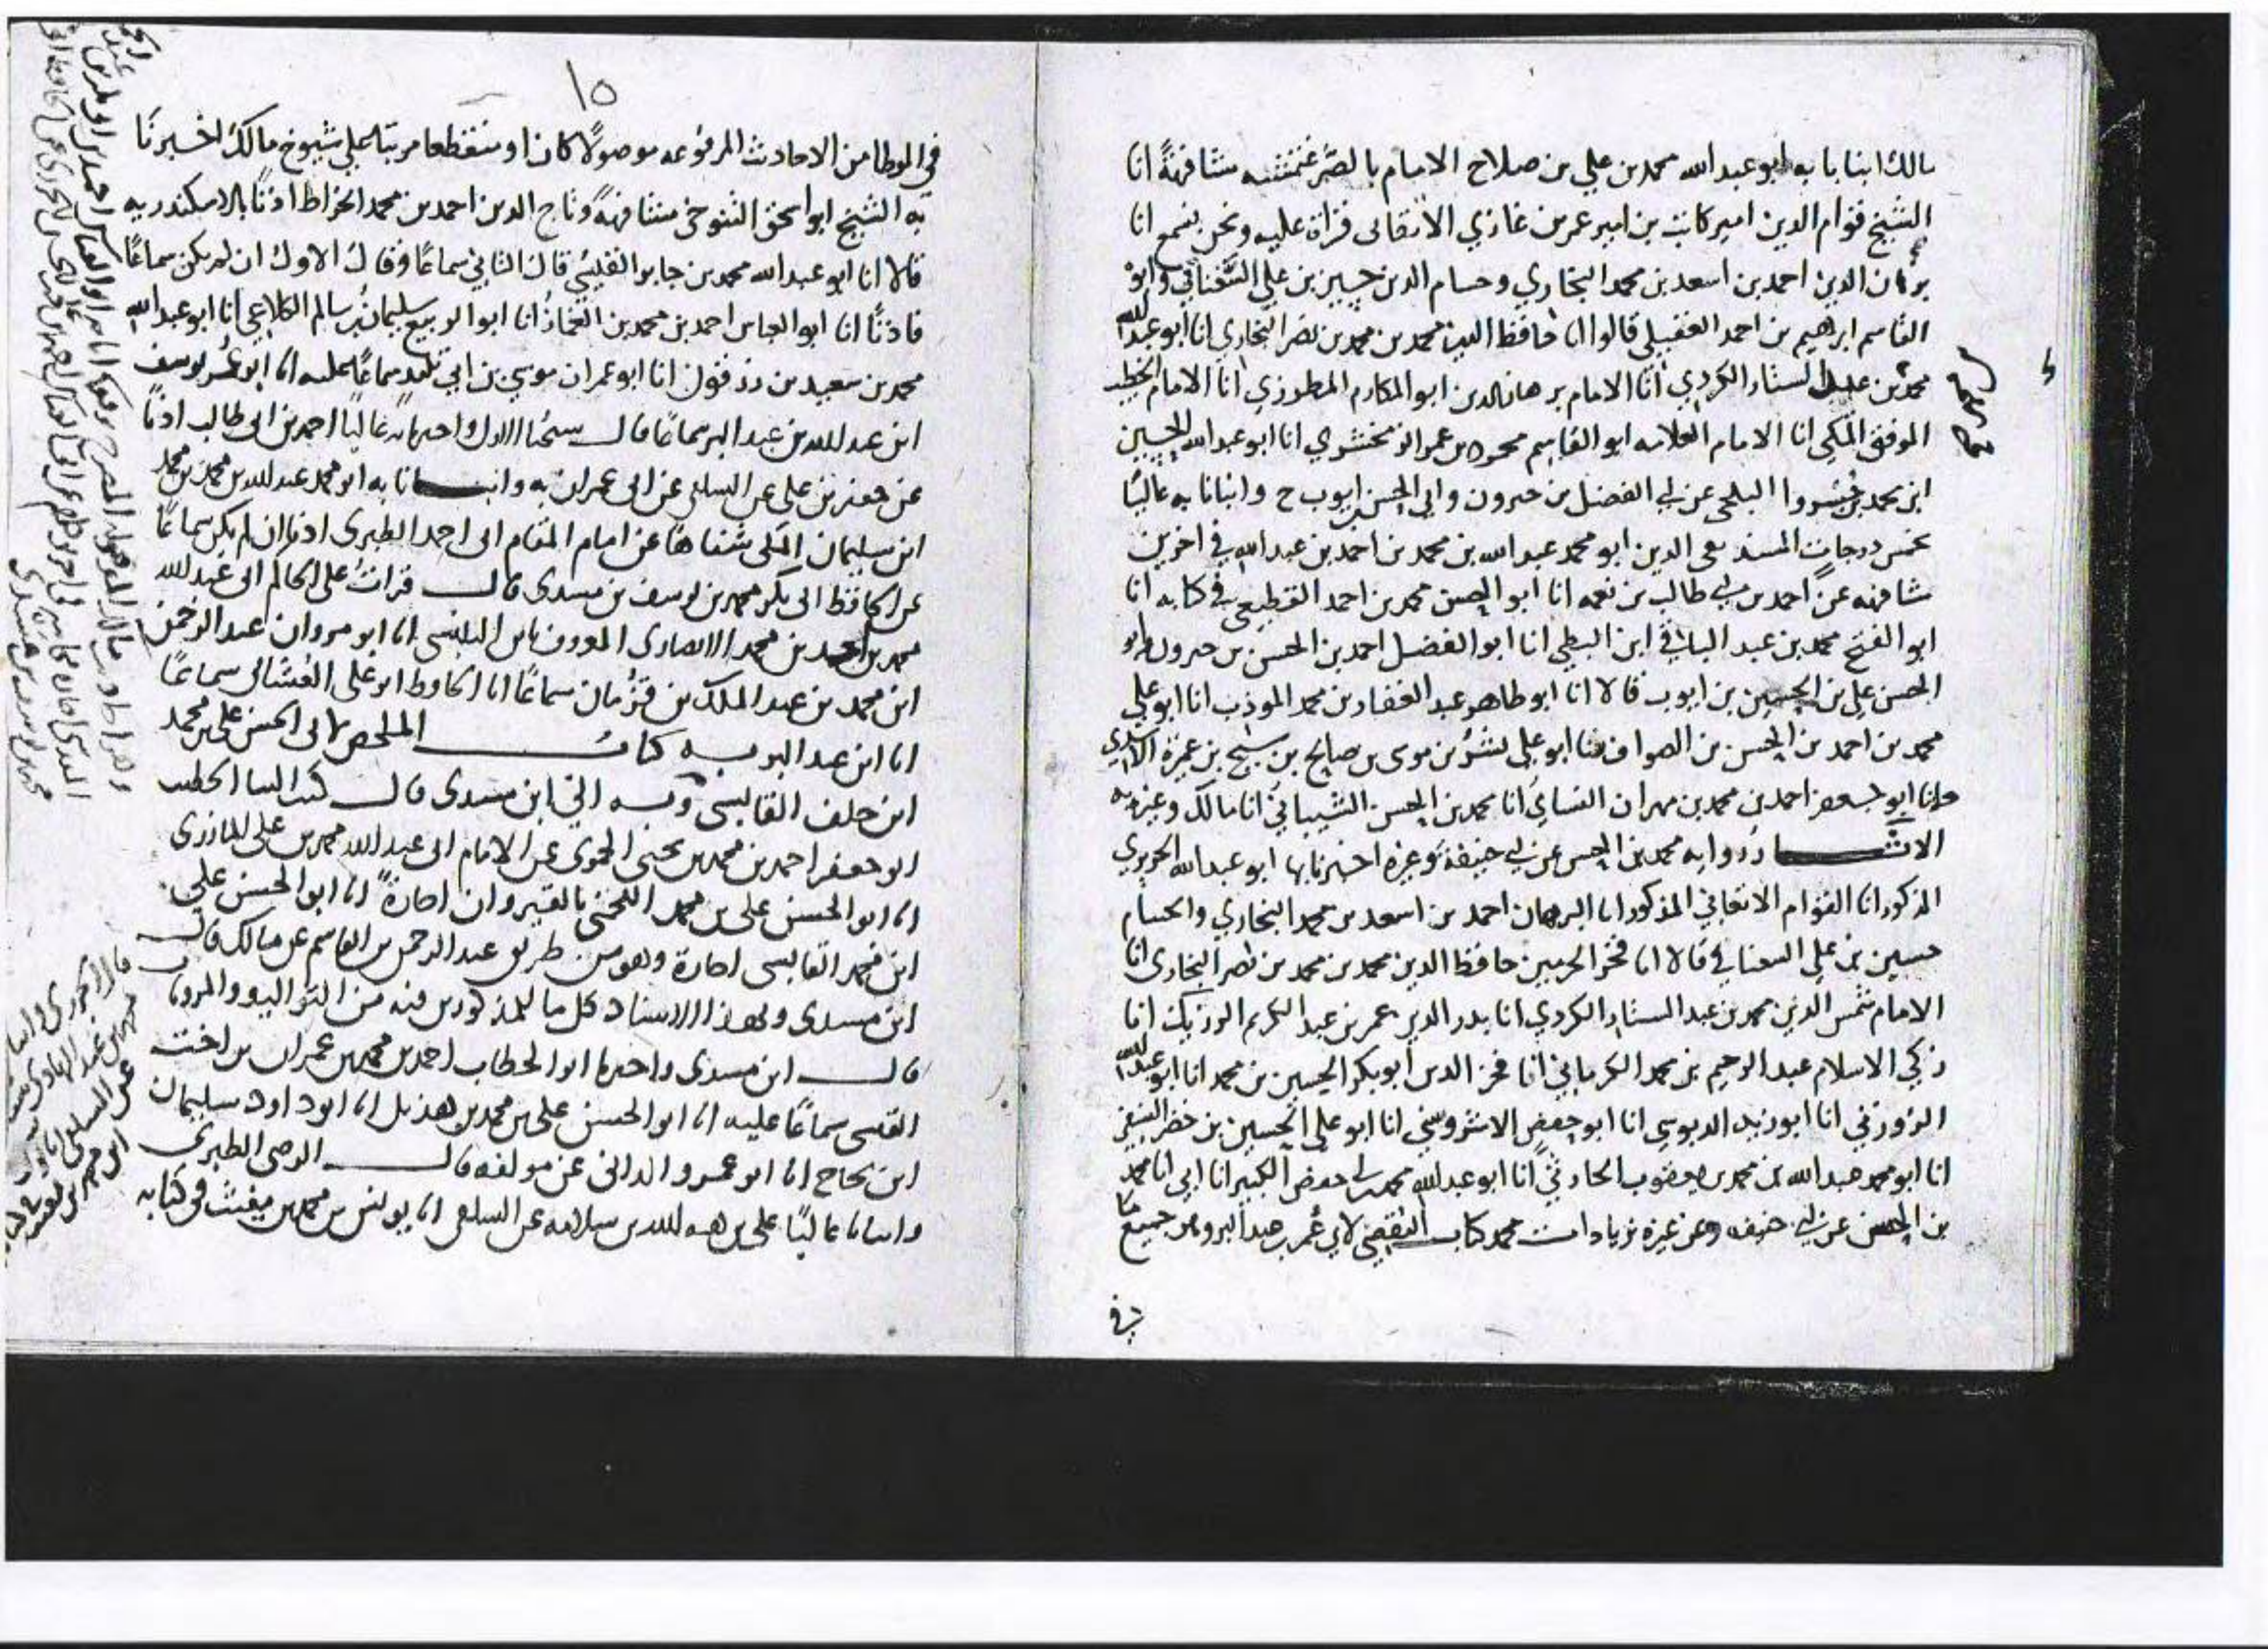 مالك انبانا به ابو عبد الله محمد بن علي بن صلاح الامام بالصرغتمشيه مشافهةً انا
الشيخ قوام الدين امير كاتب بن امير عمر بن غازي الاتقاني قراة عليه ونحن نسمع انا
برهان الدين احمد بن اسعد بن محمد البخاري وحسام الدين حسين بن علي السغناقي وابو
القاسم ابرهيم بن احمد العقيلي قالوا انا حافظ الدين محمد بن محمد بن نصر البخاري انا ابو عبد الله
محمد بن عبد الستار الكردي انا الامام برهان الدين ابو المكارم المطرزي انا الامام الخطيب
الموفق المكي انا الامام العلامه ابو القاسم محمود بن عمر الزمخشري انا ابو عبد الله الحسين
ابن محمد بن خسروا البلخي عن ابي الفضل بن خيرون وابي الحسن بن ايوب ح وانبانا به عاليًا
بخمس درجات المسند الدين ابو محمد عبد الله بن محمد بن احمد بن عبد الله في اخرين
مشافهه عن احمد بن ابي طالب بن نعمه انا ابو الحسن محمد بن احمد القطيعي في كتابه انا
ابو الفتح محمد بن عبد الباقي ابن البطي انا ابو الفضل احمد بن الحسن بن خيرون وابو
الحسن علي بن الحسين بن ايوب قالا انا ابو طاهر عبد الغفار بن محمد الموذب انا ابو علي
محمد بن احمد بن الحسن بن الصواف ثنا ابو علي بشر بن موسى بن صالح بن شيخ بن عميرة الاسدي
وانا ابو جعفر احمد بن محمد بن مهران النساي انا محمد بن الحسن الشيباني انا مالك وغيره به
الاثار رواية محمد بن الحسن عن ابي حنيفة وغيره اخبرنا بها ابو عبد الله الحريري
المذكور انا القوام الاتقاني المذكور انا البرهان احمد بن اسعد بن محمد البخاري والحسام
حسين بن علي السغناقي قالا انا فخر الحرمين حافظ الدين محمد بن محمد بن نصر البخاري انا
الامام شمس الدين محمد بن عبد الستار الكردي انا بدر الدين عمر بن عبد الكريم الورسكي انا
ركن الاسلام عبد الرحيم بن محمد الكرماني انا فخر الدين ابو بكر الحسين بن محمد انا ابو عبد الله
الزوزني انا ابو زيد الدبوسي انا ابو جعفر الاشروسني انا ابو علي الحسين بن خضر النسفي
انا ابو محمد عبد الله بن محمد بن يعقوب الحارثي انا ابو عبد الله محمد بن ابي حفص الكبير انا ابي انا محمد
بن الحسن عن ابي حنيفه وعن غيره زيادات محمد كتاب التقصي لابي عمر بن عبد البر وهو جميع ما
في
١٥
في الموطا من الاحاديث المرفوعه موصولًا كان او منقطعا مرتبا علي شيوخ مالك اخبرنا
به الشيخ ابو اسحق التنوخي مشافهةً وتاج الدين احمد بن محمد الخراط اذنًا بالاسكندريه
قالا انا ابو عبد الله محمد بن جابر القيسي قال الثاني سماعًا وقال الاول ان لم يكن سماعًا
فاذنًا انا ابو العباس احمد بن محمد بن الغماز انا ابو الربيع سليمان بن سالم الكلاعي انا ابو عبد الله
محمد بن سعيد بن زرقون انا ابو عمران موسي بن ابي تليد سماعًا عليه انا ابو عمر يوسف
ابن عبد الله بن عبد البر سماعًا قال شيخنا الاول واخبرنا به عاليًا احمد بن ابي طالب اذنًا
عن جعفر بن علي عن السلفي عن ابي عمران به وانبانا به ابو محمد عبد الله بن محمد بن محمد
ابن سليمان المكي شفاهًا عن امام المقام ابي احمد الطبري اذنا ان لم يكن سماعًا
عن الحافظ ابي بكر محمد بن يوسف بن مسدي قال قرات على الحاكم ابي عبد الله
محمد بن احمد بن محمد الانصاري المعروف بابن البلنسي انا ابو مروان عبد الرحمن
ابن محمد بن عبد الملك بن قزمان سماعًا انا الحافظ ابو علي الغساني سماعًا
انا ابن عبد البر به كتاب الملخص لابي الحسن علي بن محمد
ابن خلف القابسي وبه الي ابن مسدي قال كتب الينا الخطيب
ابو جعفر احمد بن محمد بن يحيى الحموي عن الامام ابي عبد الله محمد بن علي المازري
انا ابو الحسن علي بن محمد اللخمي بالقيروان اجازةً انا ابو الحسن علي
ابن محمد القابسي اجازة وهو من طريق عبد الرحمن بن القاسم عن مالك قال
ابن مسدي وبهذا الاسناد كل ما للمذكورين فيه من التواليف والمرويات
قال ابن مسدي واخبرنا ابو الخطاب احمد بن محمد بن عمران بن اخت
القسي سماعًا عليه انا ابو الحسن علي بن محمد بن هذيل انا ابو داود سليمان
ابن نجاح انا ابو عمرو الداني عن مولفه قال الرضى الطبري
وانبانا عاليًا علي بن هبه الله بن سلامه عن السلفي انا يونس بن محمد بن مغيث في كتابه